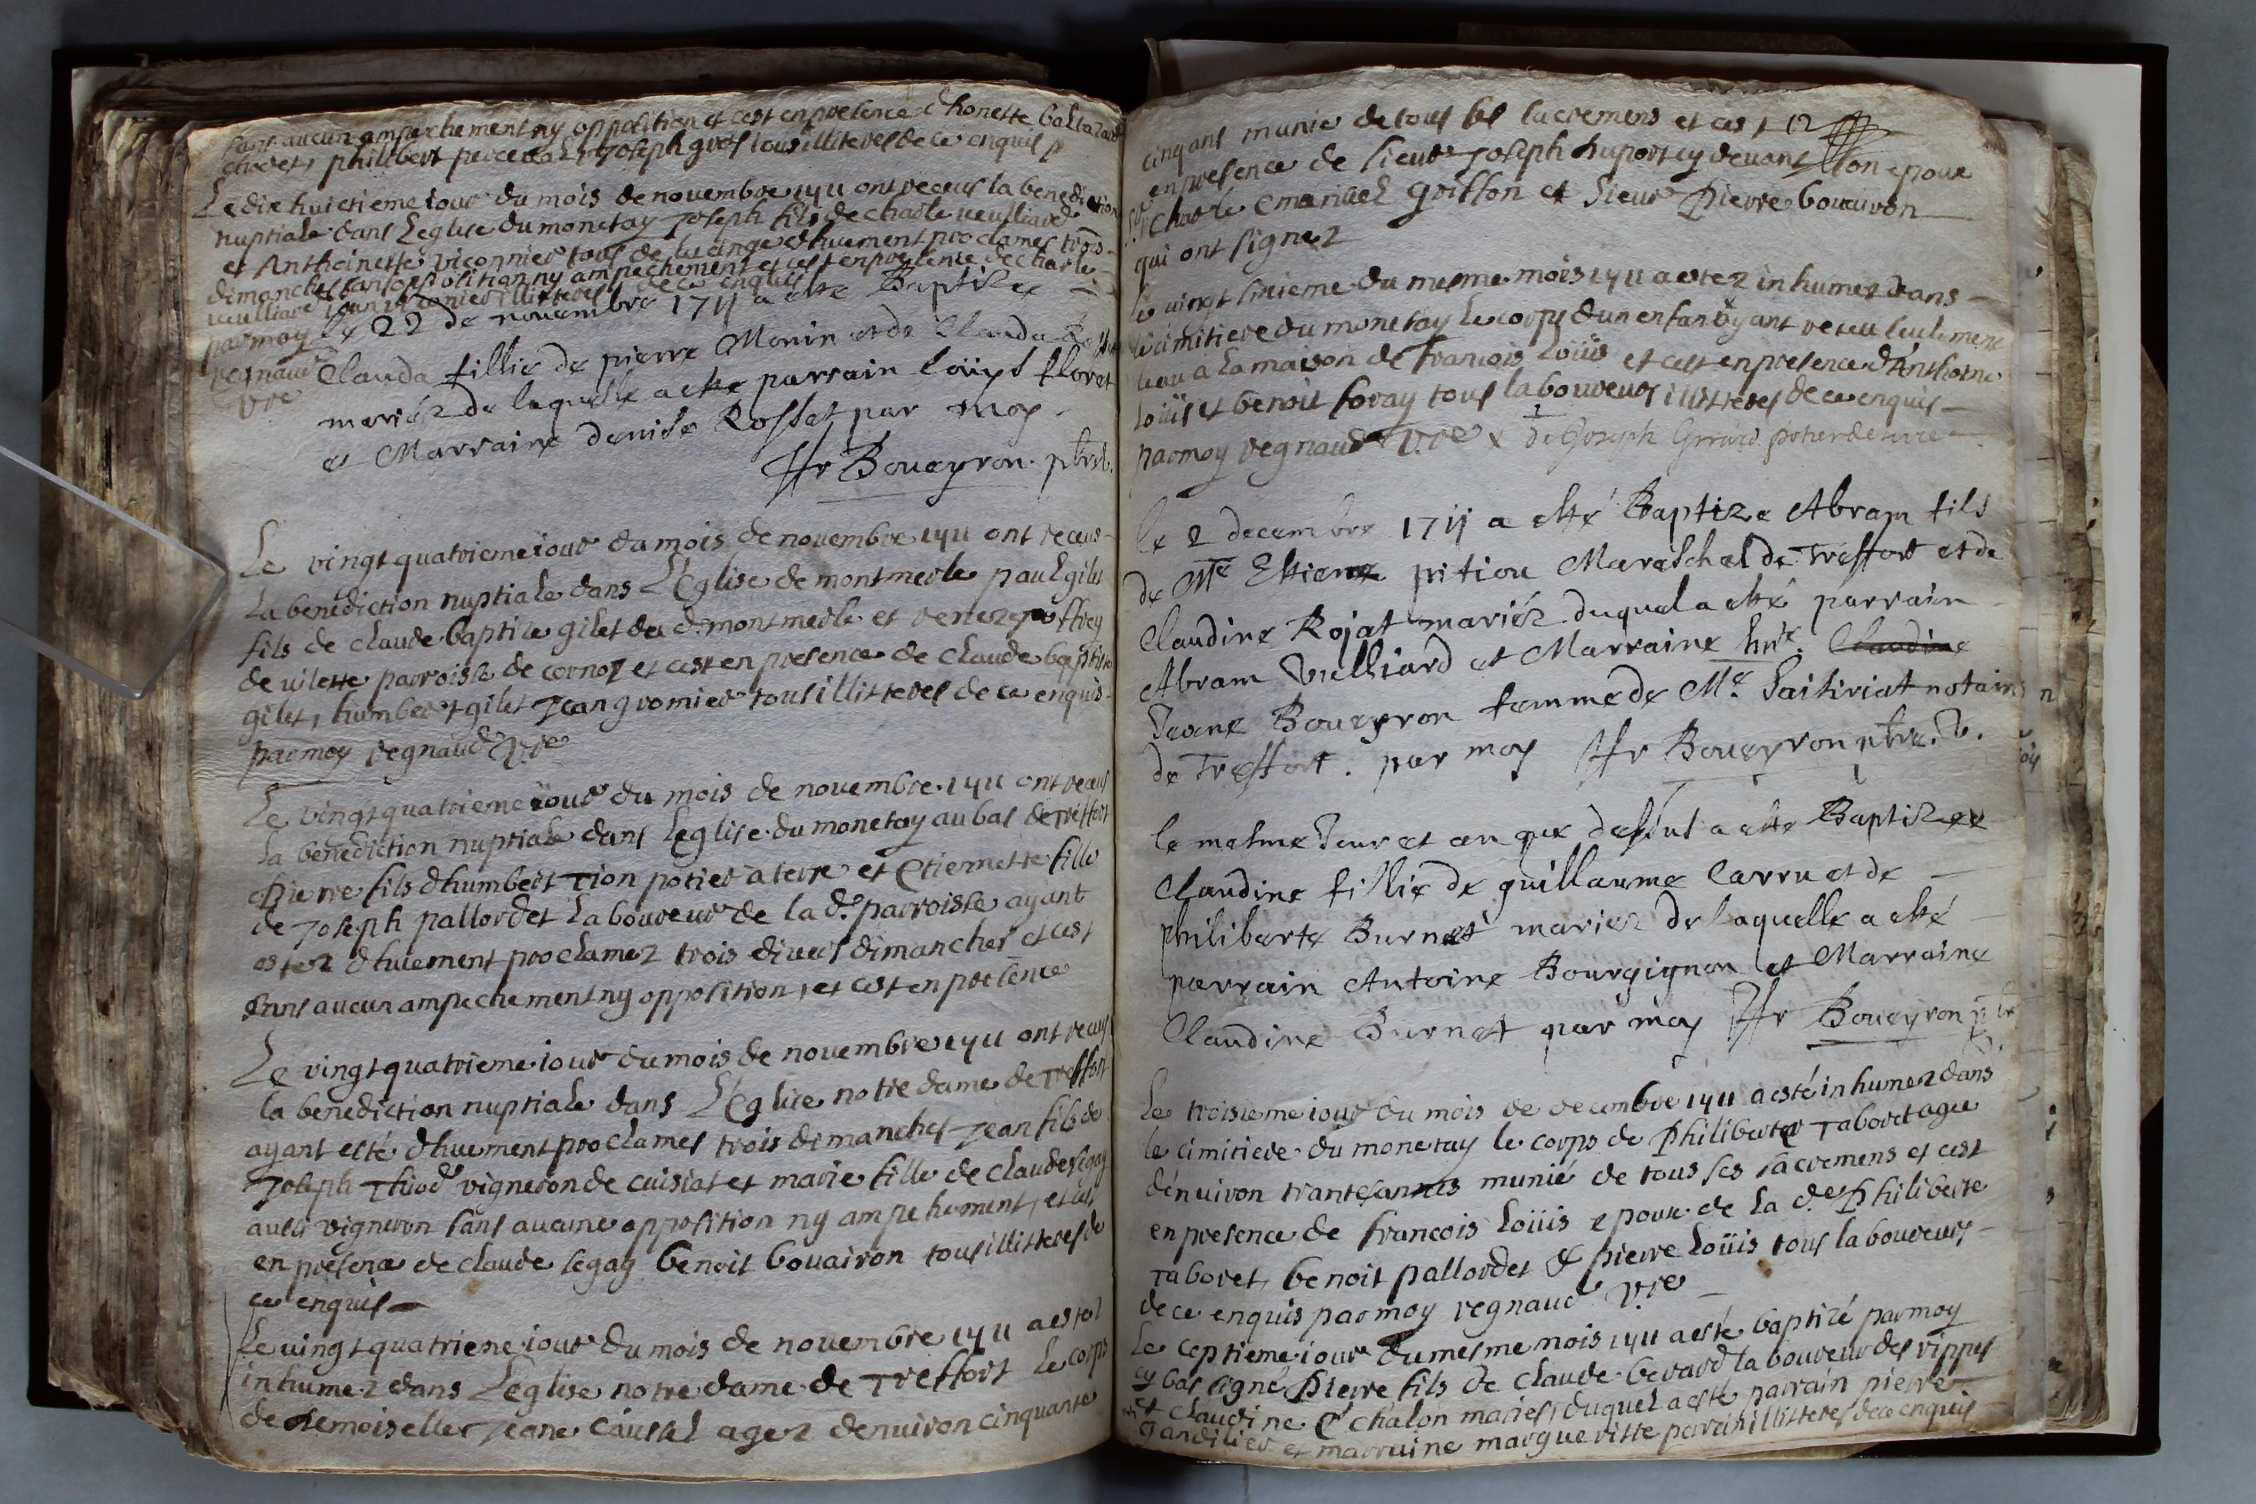 sans aucun ampechement ny opposition et cest en presence d honette baltazard
philibert perceval Joseph gros tous illiteres de ce enquis
Le dix huictieme iour du mois de novembre 1711 ont receus la benediction
nuptiale dans Leglise du monetay Joseph fils de charle veulliard
et Anthoinette viconnier tous de lucinge dhuement proclames trois
dimanches sans oposition ny ampechement et cest en presence de charle
veulliard illitteres de ce enquis
par moy regnaud Vre
le 22 de novembre 1711 a esté Baptizee
Clauda fillie de pierre Monin et de Clauda
mariéz de laquelle a esté parrain loüys floret
et Marraine denise Rosset par moy
Hr Boueyron ptre
Le vingt quatrieme iour du mois de novembre 1711 ont receus
La benediction nuptiale dans L'Eglise de montmerle paul gilet
fils de claude baptite gilet du d. montmerle et
de vilette parroisse de cornoz et cest en presence de claude baptiste
gilet, humbert gilet Jean gromier tous illitteres de ce enquis
par moy regnaud Vre
Le vingt quatrieme iour du mois de novembre 1711 ont receus
la benediction nuptiale dans Leglise du monetay au bas de Treffort
Pierre fils dhumbert Tion potier a terre et Etiennette fille
de Joseph pallordet laboureur de la d. parroisse ayant
estez dhuement proclamez trois divers dimanches et cest
sans aucun ampechement ny opposition, et cest en presence
Le vingt quatrieme iour du mois de novembre 1711 ont receus
la benediction nuptiale dans L'Eglise notre dame de Treffort
ayant esté dhuement proclames trois dimanches Jean fils de
Joseph vigneron de cuisiat et marie fille de claude segay
aussi vigneron sans aucune opposition ny ampehement, et cest
en presence de claude segay benoit bouairon tous illitteres de
ce enquis
Le vingt quatriene iour du mois de novembre 1711 a estez
inhumez dans Leglise notre dame de Treffort le corps
de demoiselle Jeane causset agez denviron cinquante
cinq ans munie de tous ses sacremens et cest
en presence de sieur Joseph duport cy devant son epoux
Sr charle emanuel griffon et sieur Pierre bouairon
qui ont signez
le vingt sixieme du mesme mois 1711 a estez inhumez dans
le cimitiere du monetay Le corps dun enfan ayant receu seulement
leau a La maison de francois Loüis et cest en presence d'Anthoine
loüis et benoit foray tous laboureurs illitteres de ce enquis
par moy regnaud Vre & de Joseph Girard potier de terre
le 2 decembre 1711 a esté Baptize Abram fils
de Mre Estiene pitiou Mareschal de Treffort et de
Claudine Rojat mariéz duquel a esté parrain
Abram Vielliard et Marraine hn'e Claudine
Jeane Boueyron femme de Me Saitiriat notaire
de Treffort. par moy Hr Boueyron ptre. V.
le mesme Jour et an que dessus a esté Baptizee
Claudine fillie de guillaume Carru et de
philiberte Burnet mariez de laquelle a esté
parrain Antoine Bourgignon et Marraine
Claudine Burnet par moy Hr Boueyron ptre
Le troisieme iour du mois de decembre 1711 a esté inhumez dans
le cimitiere du monetay le corps de Philiberte Taboret agee
denviron trante annes munié de tous ses sacremens et cest
en presence de francois Loüis epoux de La de Philiberte
Taboret, benoit pallordet & pierre Loüis tous laboureurs
de ce enquis par moy regnaud Vre
Le ceptieme iour du mesme mois 1711 a esté baptizé par moy
cy bas signé Pierre fils de claude berard laboureur des rippes
et claudine chalon maries, duquel a esté parrain pierre
gandilier et marraine margueritte parain illitteres de ce enquis